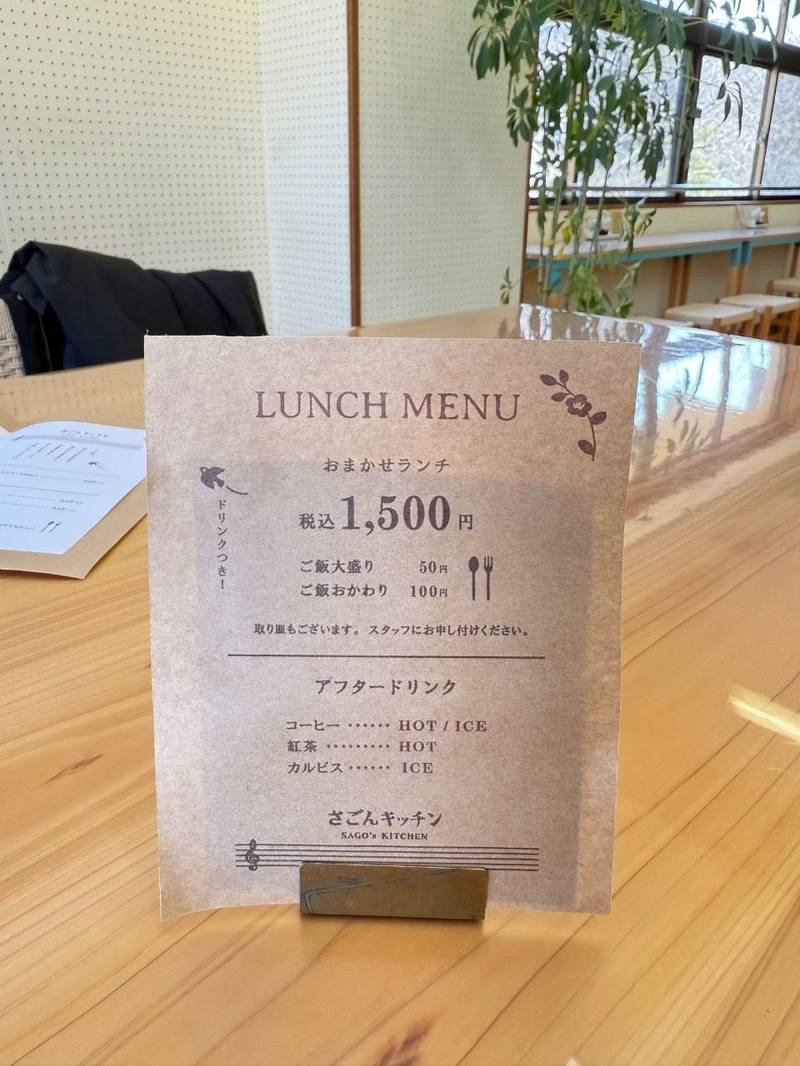 LUNCH MENU
おまかせランチ
ドリンクつき!
税込1,500円
ご飯大盛り 50円
ご飯おかわり 100円
取り皿もございます。スタッフにお申し付けください。
アフタードリンク
コーヒー ・・・・・・ HOT / ICE
紅茶 ・・・・・・・・・ HOT
カルピス ・・・・・・ ICE
さごんキッチン
SAGO's KITCHEN